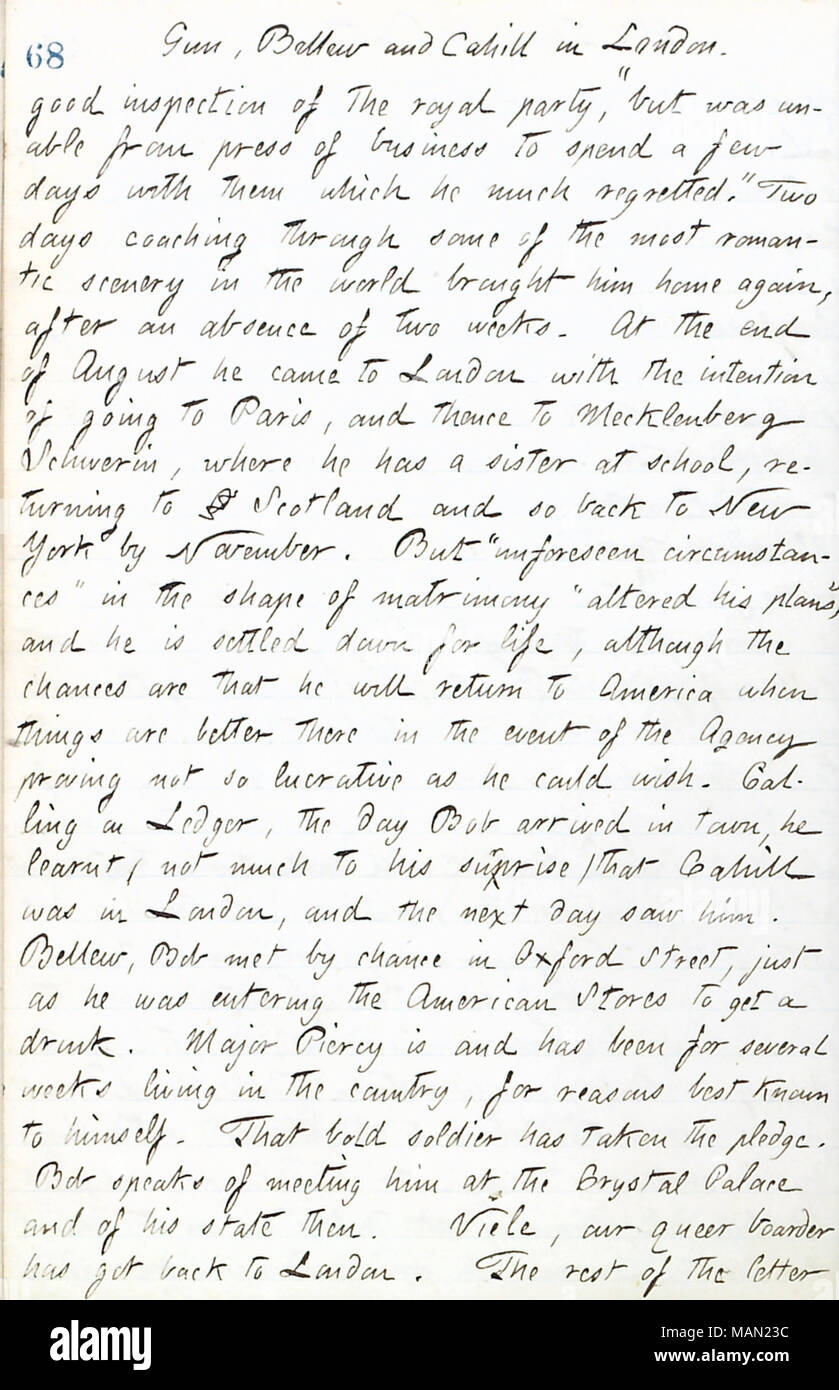 68
Gun, Bellew and Cahill in London.
good inspection of the royal party, "but was un-
able from press of business to spend a few
days with them which he much regretted." Two
days coaching through some of the most roman-
tic scenery in the world brought him home again,
after an absence of two weeks. At the end
of August he came to London with the intention
of going to Paris, and thence to Mecklenberg
Schwerin, where he has a sister at school, re-
turning to Scotland and so back to New
York by November. But "unforeseen circumstan-
ces" in the shape of matrimony "altered his plans",
and he is settled down for life, although the
chances are that he will return to America when
things are better there in the event of the Agency
proving not so lucrative as he could wish. Cal-
ling on Ledger, the day Bob arrived in town, he
learnt, (not much to his surprise) that Cahill
was in London, and the next day saw him.
Bellew, Bob met by chance in Oxford Street, just
as he was entering the American Stores to get a
drink. Major Piercy is and has been for several
weeks living in the country, for reasons best known
to himself. That bold soldier has taken the pledge.
Bob speaks of meeting him at the Crystal Palace
and of his state then. Viele, our queer boarder
has got back to London. The rest of the letter
alamy
Image ID: MAN23C
www.alamy.com